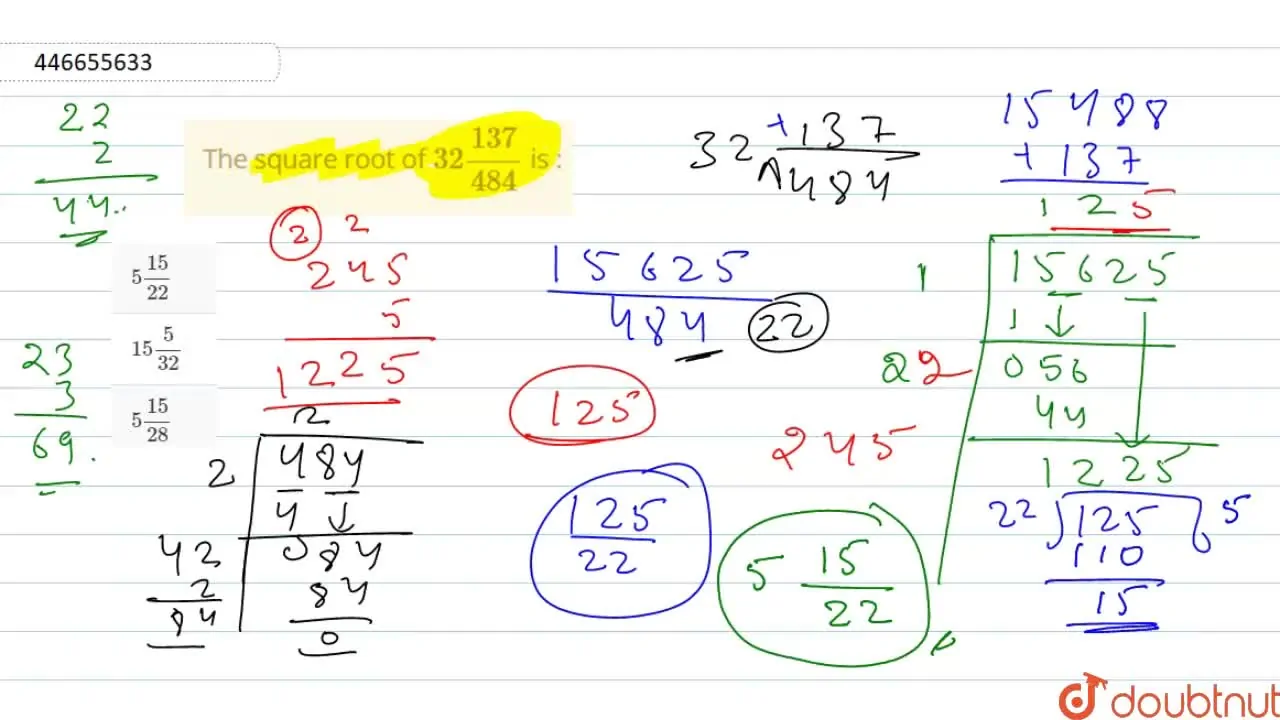 446655633
22
2
44..
The square root of 32 137/484 is :
5 15/22
15 5/32
5 15/28
23
3
69.
2 2
245
5
1225
2
2 484
4
42 084
2 84
84 0
32 + 137
484
15625
484 22
125
125
22
245
5 15
22
15488
+ 137
125
1 15625
1
22 056
44
1225
22 125 5
110
15
doubtnut